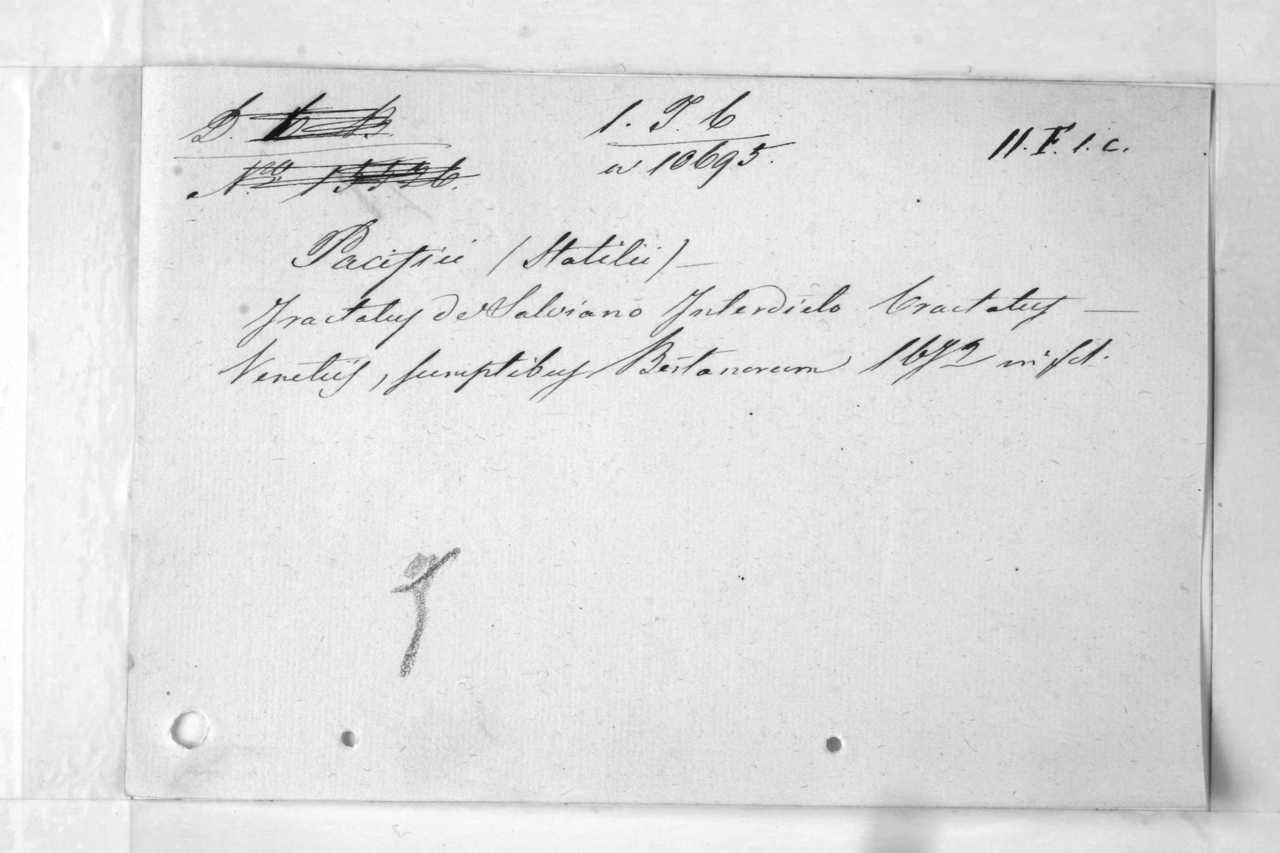 D.
1. T. C
11. F. 1. c.
a 10695.
Pacifici (Statilii) —
Tractatus de Salviano Interdicto Tractatus —
Venetiis, sumptibus Bertanorum 1672 in fol.